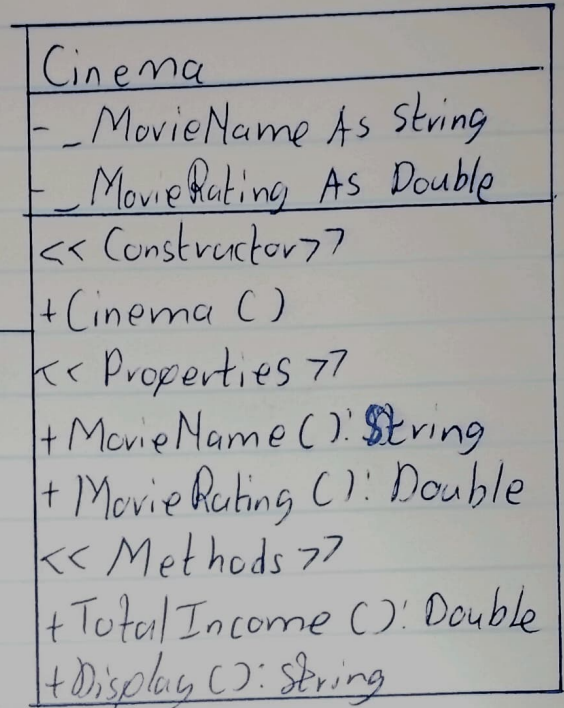 Cinema
- _MovieName As String
- _MovieRating As Double
<< Constructor >>
+Cinema ()
<< Properties >>
+MovieName (): String
+MovieRating (): Double
<< Methods >>
+TotalIncome (): Double
+Display (): String